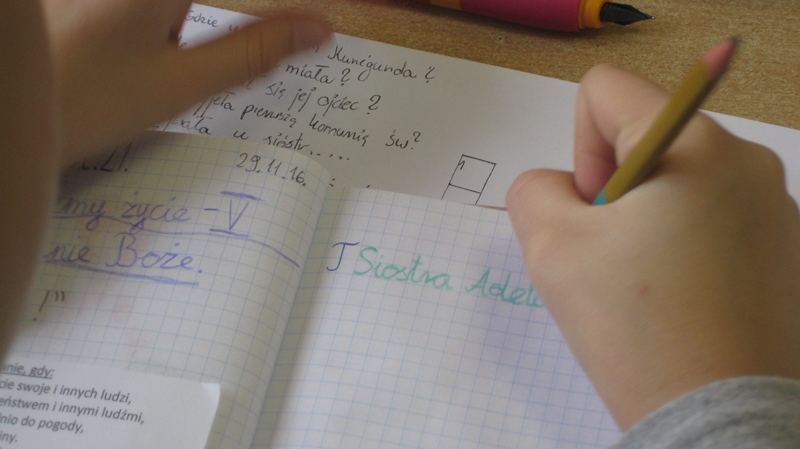 Gdzie
Kunegunda?
miała?
się jej ojciec?
pierwszą komunię św?
u sióstr.....
1
29.11.16.
życie - V
nie Boże.
!"
T Siostra Adel
nie, gdy:
cie swoje i innych ludzi,
eństwem i innymi ludźmi,
nio do pogody,
iny.